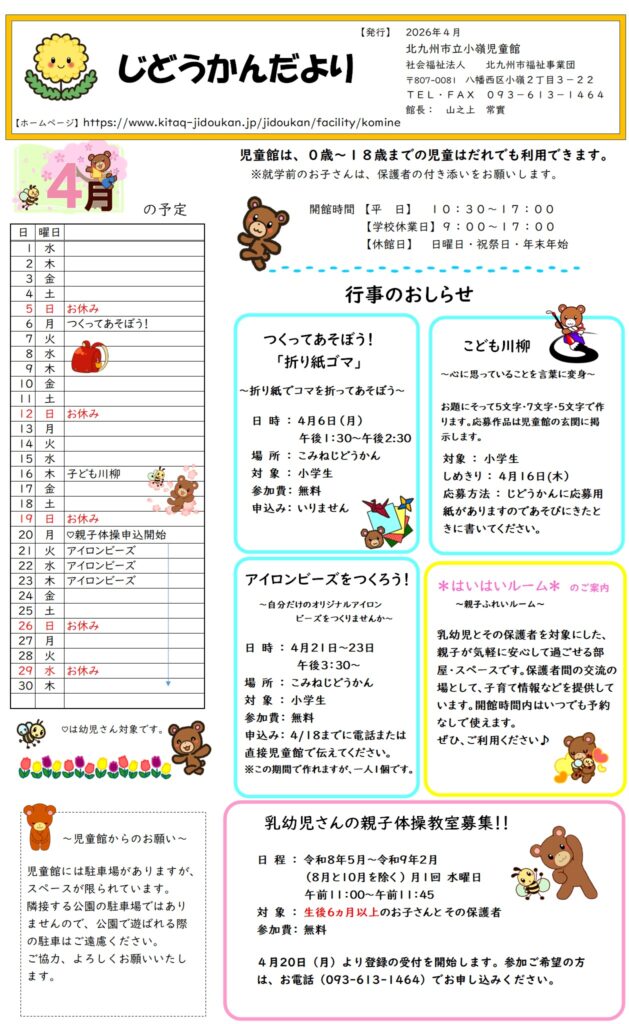 じどうかんだより
【発行】 2026年4月
北九州市立小嶺児童館
社会福祉法人 北九州市福祉事業団
〒807-0081 八幡西区小嶺2丁目3-22
TEL・FAX 093-613-1464
館長： 山之上 常實
【ホームページ】https://www.kitaq-jidoukan.jp/jidoukan/facility/komine
4月 の予定
日 曜日
1 水
2 木
3 金
4 土
5 日 お休み
6 月 つくってあそぼう！
7 火
8 水
9 木
10 金
11 土
12 日 お休み
13 月
14 火
15 水
16 木 子ども川柳
17 金
18 土
19 日 お休み
20 月 ♡親子体操申込開始
21 火 アイロンビーズ
22 水 アイロンビーズ
23 木 アイロンビーズ
24 金
25 土
26 日 お休み
27 月
28 火
29 水 お休み
30 木
♡は幼児さん対象です。
～児童館からのお願い～
児童館には駐車場がありますが、
スペースが限られています。
隣接する公園の駐車場ではあり
ませんので、公園で遊ばれる際
の駐車はご遠慮ください。
ご協力、よろしくお願いいたし
ます。
児童館は、0歳～18歳までの児童はだれでも利用できます。
※就学前のお子さんは、保護者の付き添いをお願いします。
開館時間 【平 日】 10：30～17：00
【学校休業日】 9：00～17：00
【休館日】 日曜日・祝祭日・年末年始
行事のおしらせ
つくってあそぼう！
「折り紙ゴマ」
～折り紙でコマを折ってあそぼう～
日 時 ： 4月6日（月）
午後1：30～午後2：30
場 所 ： こみねじどうかん
対 象 ： 小学生
参加費： 無料
申込み： いりません
こども川柳
～心に思っていることを言葉に変身～
お題にそって5文字・7文字・5文字で作
ります。応募作品は児童館の玄関に掲
示します。
対象 ： 小学生
しめきり ： 4月16日(木)
応募方法 ： じどうかんに応募用
紙がありますのであそびにきたと
きに書いてください。
アイロンビーズをつくろう！
～自分だけのオリジナルアイロン
ビーズをつくりませんか～
日 時 ： 4月21日～23日
午後3：30～
場 所 ： こみねじどうかん
対 象 ： 小学生
参加費： 無料
申込み： 4/18までに電話または
直接児童館で伝えてください。
※この期間で作れますが、一人1個です。
＊はいはいルーム＊ のご案内
～親子ふれいルーム～
乳幼児とその保護者を対象にした、
親子が気軽に安心して過ごせる部
屋・スペースです。保護者間の交流の
場として、子育て情報などを提供して
います。開館時間内はいつでも予約
なしで使えます。
ぜひ、ご利用ください♪
乳幼児さんの親子体操教室募集！！
日 程 ： 令和8年5月～令和9年2月
（8月と10月を除く） 月1回 水曜日
午前11：00～午前11：45
対 象 ： 生後6ヵ月以上のお子さんとその保護者
参加費： 無料
4月20日（月）より登録の受付を開始します。参加ご希望の方
は、お電話（093-613-1464）でお申し込みください。